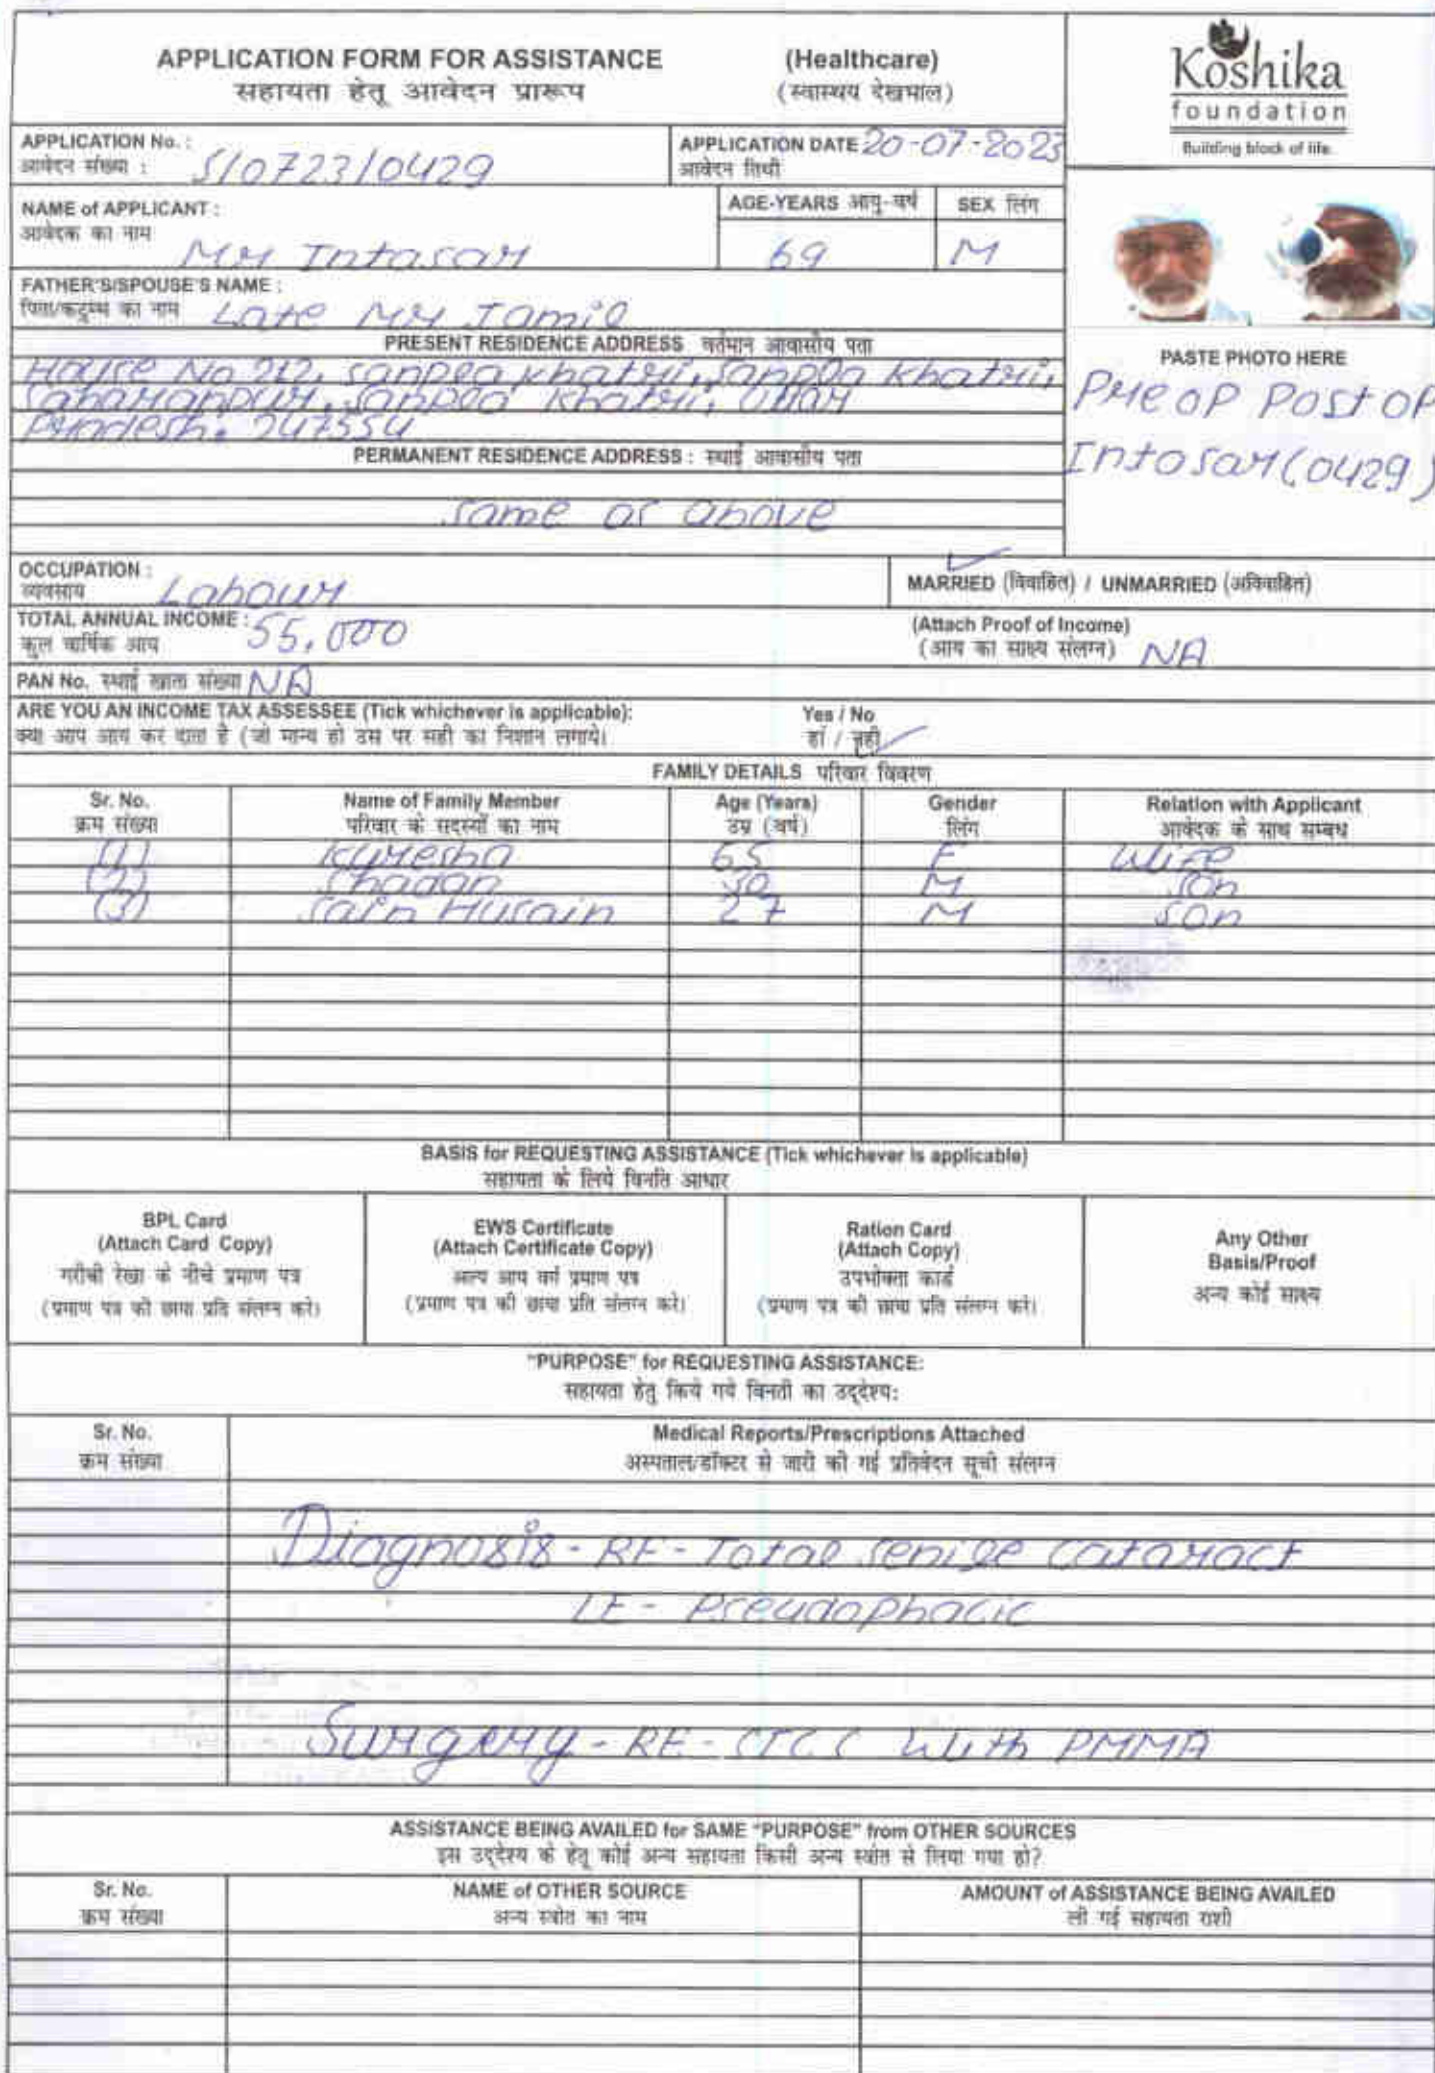 APPLICATION FORM FOR ASSISTANCE (Healthcare)
सहायता हेतू आवेदन प्रारूप (स्वास्थय देखभाल)
Koshika
foundation
Building block of life.
APPLICATION No. :
आवेदन संख्या : S/0723/0429
APPLICATION DATE 20-07-2023
आवेदन तिथी
NAME of APPLICANT :
आवेदक का नाम Mr Intasar
AGE-YEARS आयु-वर्ष 69
SEX लिंग M
FATHER'S/SPOUSE'S NAME :
पिता/कटुम्ब का नाम Late Mr Jamil
PRESENT RESIDENCE ADDRESS वर्तमान आवासीय पता
House No 212, sanpla khatri, sanpla khatri,
Saharanpur, sanpla khatri, Uttar
Pradesh. 247554
PERMANENT RESIDENCE ADDRESS : स्थाई आवासीय पता
same as above
PASTE PHOTO HERE
Pre OP Post OP
Intosar (0429)
OCCUPATION :
व्यवसाय Labour
MARRIED (विवाहित) / UNMARRIED (अविवाहित)
TOTAL ANNUAL INCOME : 55,000
कुल वार्षिक आय
(Attach Proof of Income)
(आय का साक्ष्य संलग्न) NA
PAN No. स्थाई खाता संख्या NA
ARE YOU AN INCOME TAX ASSESSEE (Tick whichever is applicable): Yes / No
क्या आप आय कर दाता है (जो मान्य हो उस पर सही का निशान लगाये। हां / नही
FAMILY DETAILS परिवार विवरण
Sr. No. Name of Family Member Age (Years) Gender Relation with Applicant
क्रम संख्या परिवार के सदस्यों का नाम उम्र (वर्ष) लिंग आवेदक के साथ सम्बध
(1) Kuresha 65 F Wife
(2) Chadan 30 M Son
(3) Sain Husain 27 M Son
BASIS for REQUESTING ASSISTANCE (Tick whichever is applicable)
सहायता के लिये विनति आधार
BPL Card
(Attach Card Copy)
गरीबी रेखा के नीचे प्रमाण पत्र
(प्रमाण पत्र की छाया प्रति संलग्न करे)
EWS Certificate
(Attach Certificate Copy)
अल्प आय वर्ग प्रमाण पत्र
(प्रमाण पत्र की छाया प्रति संलग्न करे।
Ration Card
(Attach Copy)
उपभोक्ता कार्ड
(प्रमाण पत्र की छाया प्रति संलग्न करे।
Any Other
Basis/Proof
अन्य कोई साक्ष्य
"PURPOSE" for REQUESTING ASSISTANCE:
सहायता हेतु किये गये विनती का उद्देश्य:
Sr. No. Medical Reports/Prescriptions Attached
क्रम संख्या अस्पताल/डॉक्टर से जारी की गई प्रतिवेदन सूची संलग्न
Diagnosis - RE - Total senile cataract
LE - Pseudophacic
Surgery - RE - SICS With PMMA
ASSISTANCE BEING AVAILED for SAME "PURPOSE" from OTHER SOURCES
इस उद्देश्य के हेतु कोई अन्य सहायता किसी अन्य स्त्रोत से लिया गया हो?
Sr. No. NAME of OTHER SOURCE AMOUNT of ASSISTANCE BEING AVAILED
क्रम संख्या अन्य स्त्रोत का नाम ली गई सहायता राशी